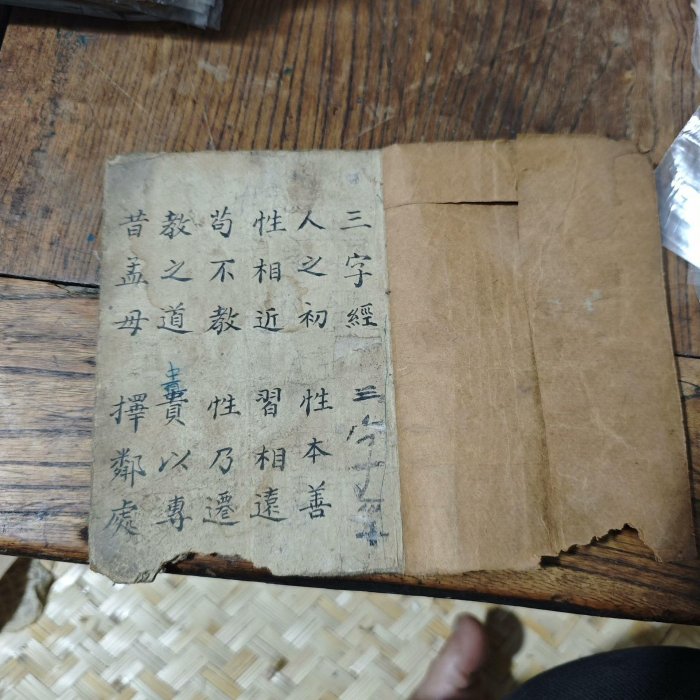 三字經
人之初 性本善
性相近 習相遠
苟不教 性乃遷
教之道 貴以專
昔孟母 擇鄰處